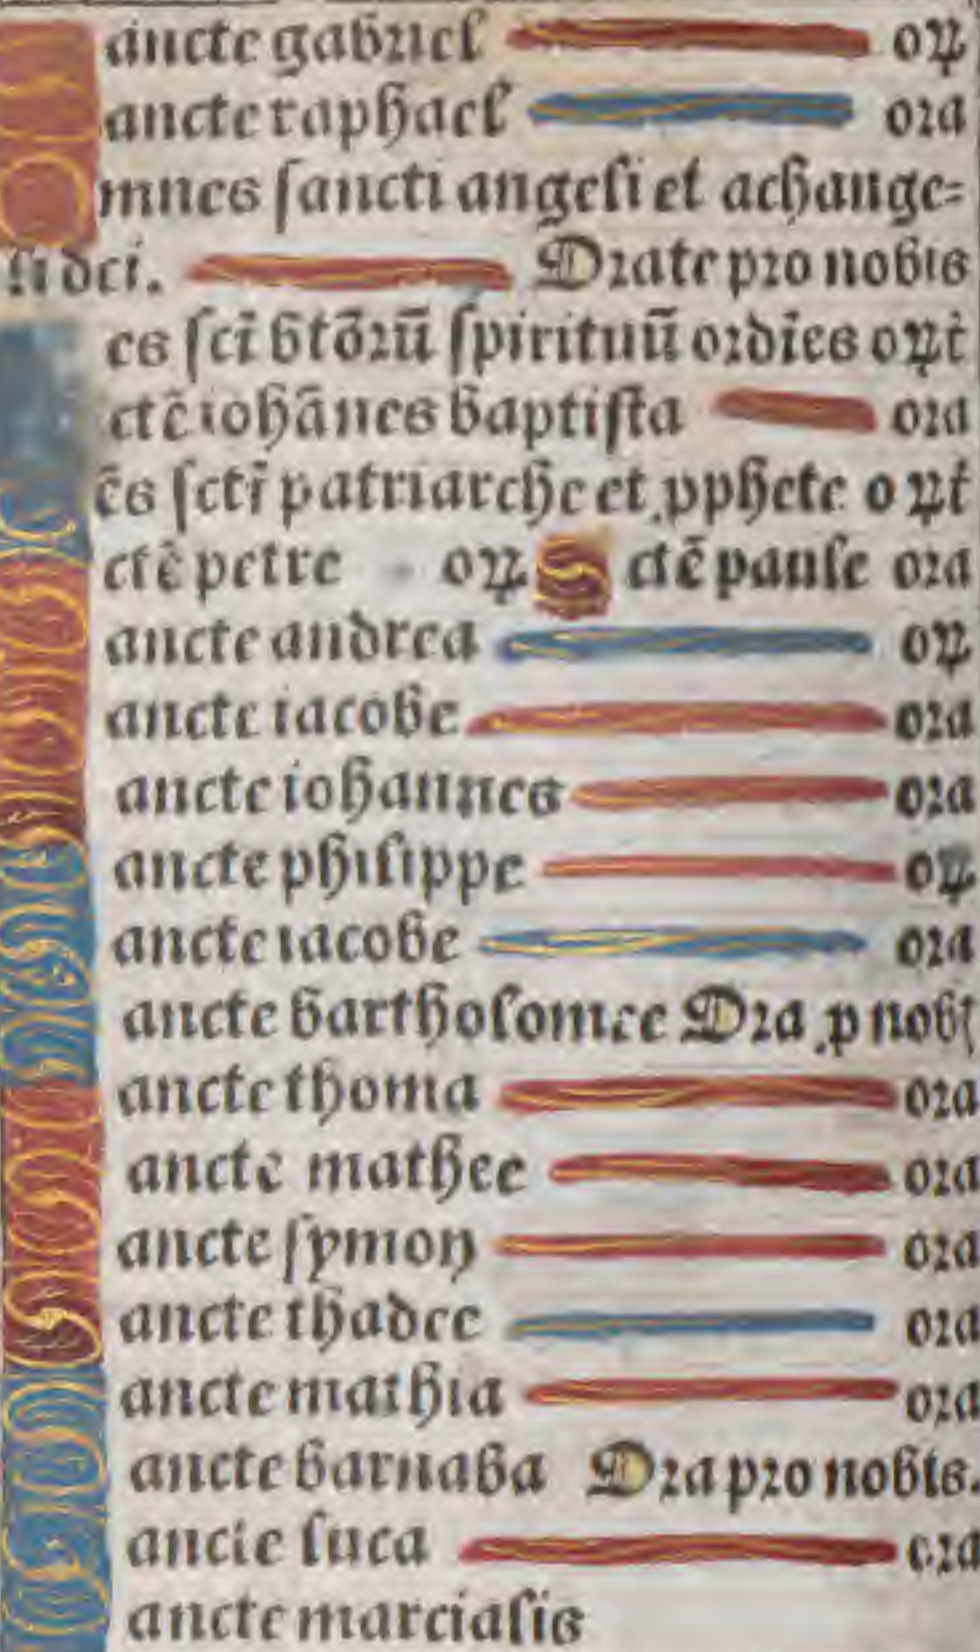 Sancte gabriel oꝝ
Sancte raphael ora
Omnes sancti angeli et achange-
li dei. Orate pro nobis
es scī btōrū spirituū ordīes oꝝt
ctē iohānes baptista ora
ēs sctī patriarche et ꝓphete oꝝt
ctē petre oꝝ S ctē paule ora
Sancte andrea oꝝ
Sancte iacobe ora
Sancte iohannes ora
Sancte philippe oꝝ
Sancte iacobe ora
Sancte bartholomee Ora ꝓ nobꝭ
Sancte thoma ora
Sancte mathee ora
Sancte symon ora
Sancte thadee ora
Sancte mathia ora
Sancte barnaba Ora pro nobis.
Sancte luca ora
Sancte marcialis